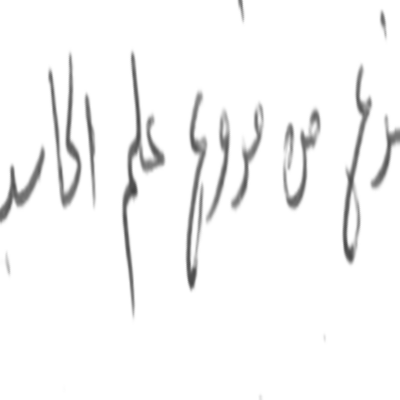 فرع من فروع علم الحاسب